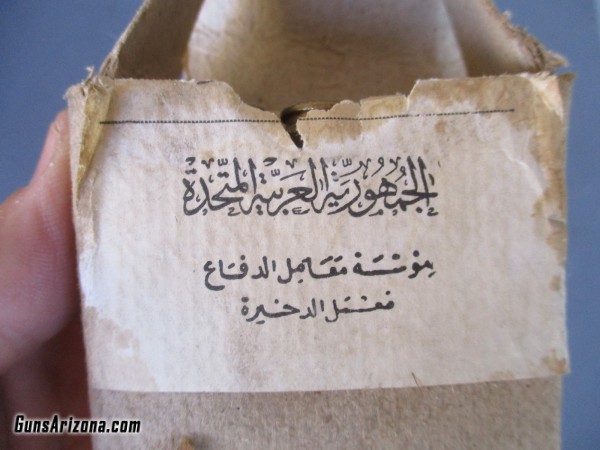 الجمهورية العربية المتحدة
مؤسسة معامل الدفاع
معمل الذخيرة
GunsArizona.com